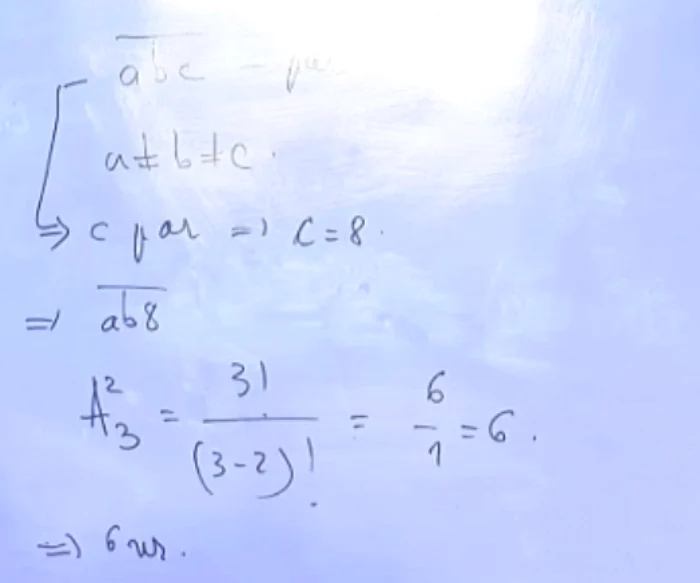 abc -
a≠b≠c.
=> c par => C=8.
=> ab8
A₃² = 3! / (3-2)! = 6/1 = 6.
=> 6 nr.